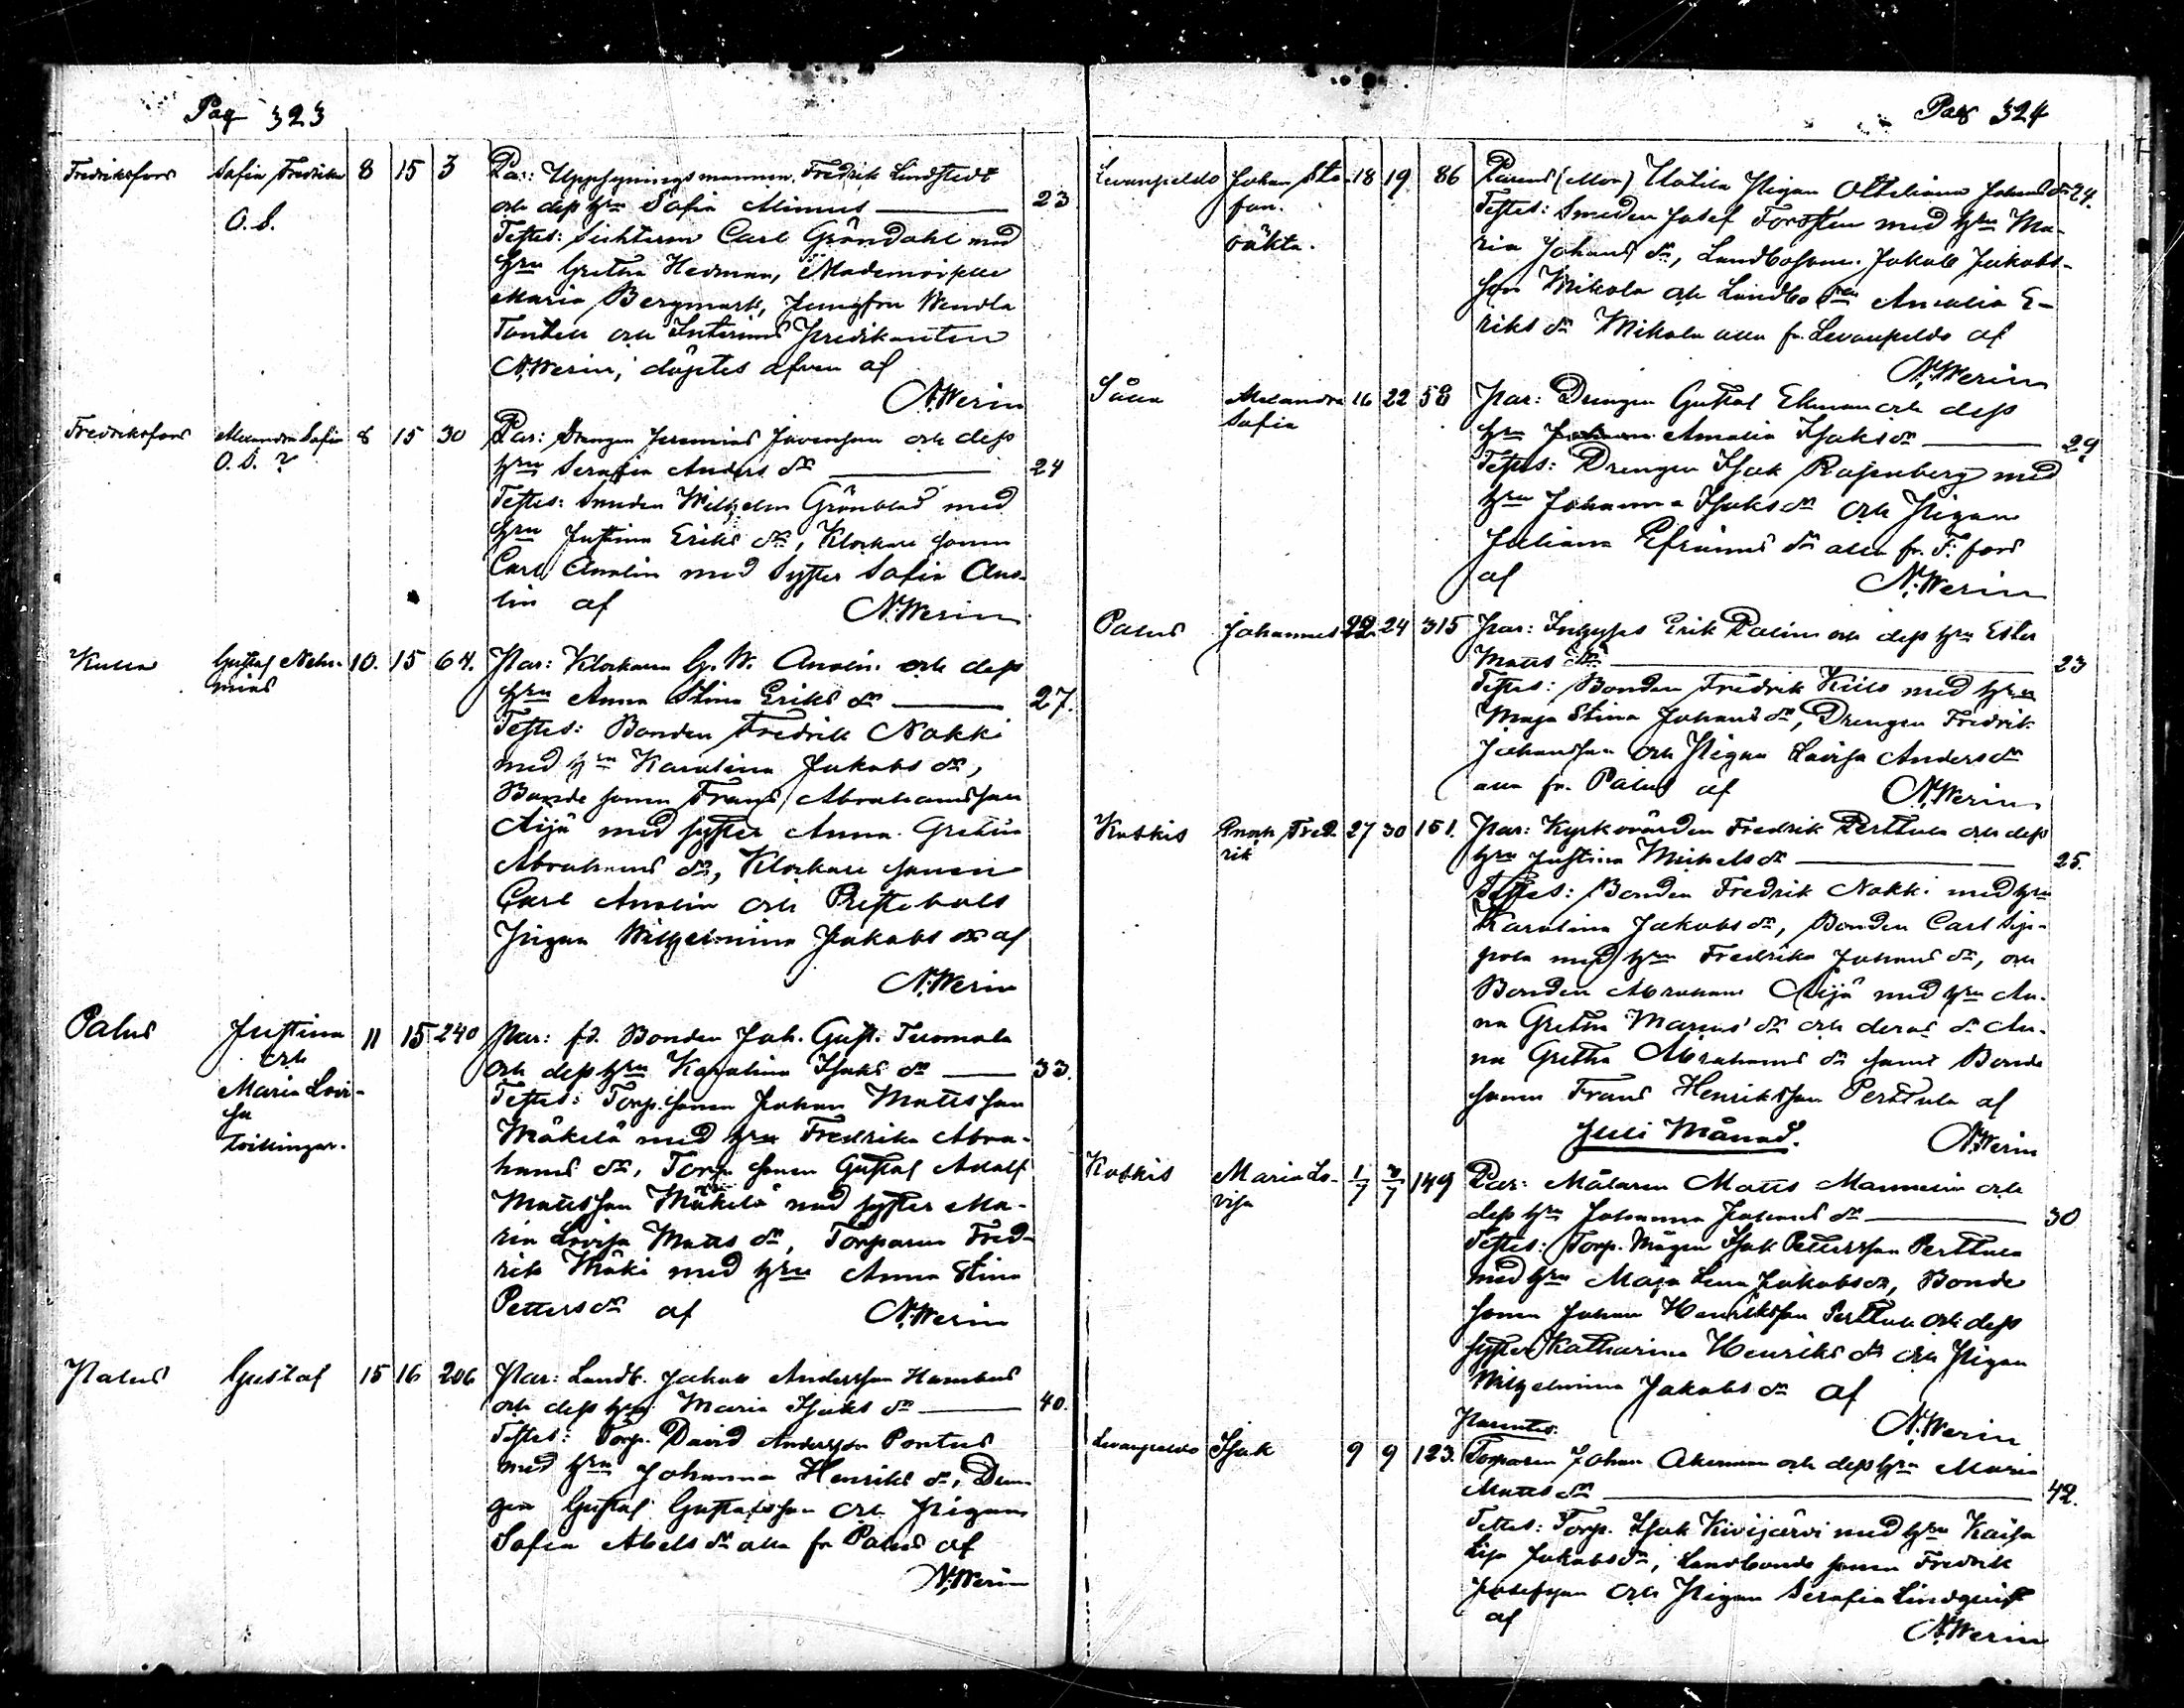 Pag 323
Fredriksfors Sofia Fredrika 8 15 3 Par: Uppsyningsmannen Fredrik Lindstedt
O. S. och dess hru Sofia 23
Testes: Carl Gröndahl med
hru Gretha Hedman, Mademoiselle
Maria Bergmark, Jungfru Wendla
och Interims predikanten
N. Werin, döptes äfven af
N. Werin
Fredriksfors Alexandra Sofia 8 15 30 Par: Drengen Jeremias och dess
O. S. ? hru Serafia Anders dr 24
Testes: Smeden Wilhelm Grönblad med
hru Justina Eriks dr, Klockare sonen
Carl Analin med Syster Sofia Ana-
lin af N. Werin
Gustaf Nehe- 10. 15 64. Par: Klockaren G. W. Analin och dess
mias hru Anna Stina Eriks dr 27.
Testes: Bonden Fredrik Nokki
med hru Karolina Jakobs dr,
Bonde sonen Frans Abrahamsson
Äijä med syster Anna Gretha
Abrahams dr, Klockare sonen
Carl Analin och Prestebols
Pigan Wilhelmina Jakobs dr af
N. Werin
Palus Justina 11 15 240 Par: fd. Bonden Joh. Gust. Tuomala
och och dess hru Karolina Isaks dr 33.
Maria Lovi- Testes: Torp. sonen Johan Matts son
sa Mäkelä med hru Fredrika Abra-
tvillingar. hams dr, Torp sonen Gustaf Adolf
Mattsson Mäkelä med syster Ma-
ria Lovisa Matts dr, Torparen Fred-
rik Mäki med hru Anna Stina
Petters dr af N. Werin
Palus Gustaf 15 16 206 Par: Landb. Jakob Andersson Hambus
och dess hru Maria Isaks dr 40.
Testes: Torp. David Andersson Pontus
med hru Johanna Henriks dr, Dren-
gen Gustaf Gustafsson och Pigan
Sofia Abels dr alla fr Palus af
N. Werin
Pag 324
Levanpeldo Johan Sta- 18 19 86 Parens (Mor) Pigan Ottiliana Johans dr 24.
fan. Testes: Smeden Josef Forssten med hru Ma-
oäkta. ria Johans dr, Landbosonen Jakob Jakobs-
son Mikola och Landbo hru Amalia E-
riks dr Mikola alla fr. Levanpeldo af
N. Werin
Alexandra 16 22 58 Par: Drengen Gustaf Ekman och dess
Sofia hru Amalia Isaks dr 29
Testes: Drengen Isak Rosenberg med
hru Johanna Isaks dr och Pigan
Juliana Efraims dr alla fr. F. fors
af N. Werin
Palus Johannes 22 24 315 Par: Inhyses Erik Palin och dess hru Ester
Matts dr 23
Testes: Bonden Fredrik Kiilo med hru
Maja Stina Johans dr, Drengen Fredrik
Johansson och Pigan Lovisa Anders dr
alla fr. Palus af N. Werin
Koskis Enok Fred- 27 30 151. Par: Kyrkovärden Fredrik Perttula och dess
rik hru Justina Mickels dr 25.
Testes: Bonden Fredrik Nokki med hru
Karolina Jakobs dr, Bonden Carl Sip-
pola med hru Fredrika Johans dr, och
Bonden Abraham Äijä med hru An-
na Gretha Marcus dr och deras dr An-
na Gretha Abrahams dr samt Bonde
sonen Frans Henriksson Perttula af
Juli Månad. N. Werin
Koskis Maria Lo- 1/7 3/7 149 Par: Målaren Matts Mannelin och
visa dess hru Johanna Johans dr 30
Testes: Torp. Mågen Isak Pettersson Perttula
med hru Maja Lena Jakobs dr, Bonde
sonen Johan Henriksson Perttula och dess
syster Katharina Henriks dr och Pigan
Wilhelmina Jakobs dr af
N. Werin
Parentes:
Levanpeldo Isak 9 9 123. Torparen Johan Åkerman och dess hru Maria
Matts dr 42.
Testes: Torp. Isak Kivijärvi med hru Kaisa
Lisa Jakobs dr, Landbonde sonen Fredrik
Josefsson och Pigan Serafia Lindqvist
af N. Werin